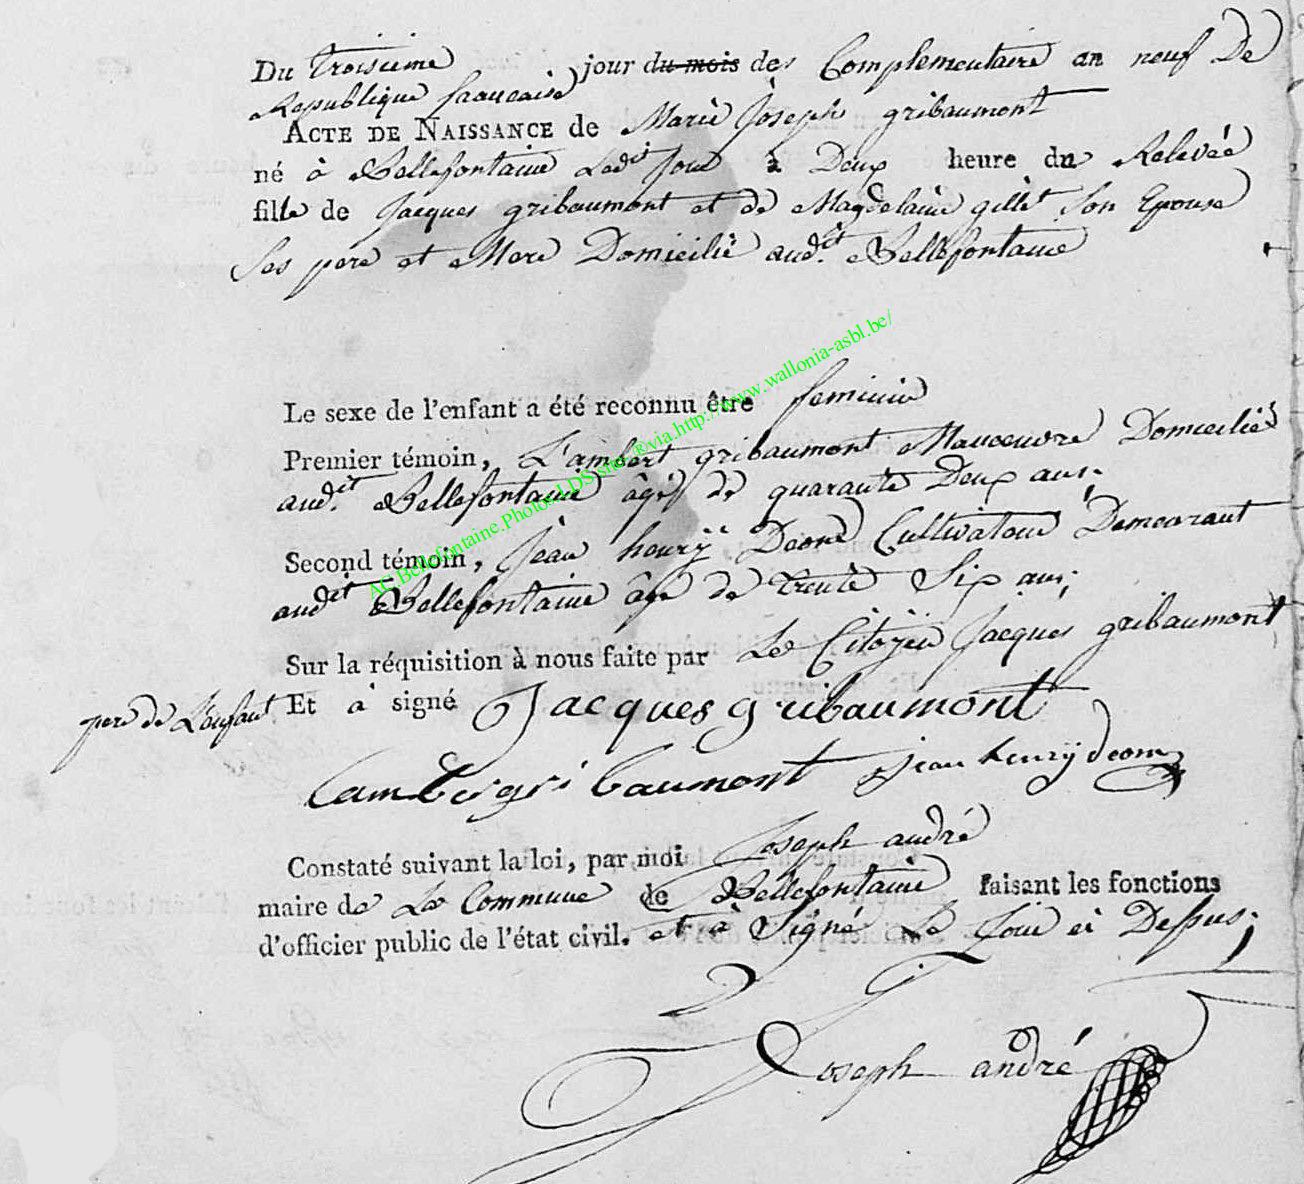 Du troisieme jour du mois des Complementaire an neuf De
Republique francaise
ACTE DE NAISSANCE de Marie Joseph gribaumont
né à Bellefontaine Ledit Jour à Deux heure du Relevée
fille de Jacques gribaumont et de Magdelaine gillet Son Epouse
Ses pere et Mere Domicilié audit Bellefontaine
Le sexe de l'enfant a été reconnu être feminin
Premier témoin, Lambert gribaumont Manoeuvre Domicilié
audit Bellefontaine âgé de quarante Deux ans.
Second témoin, Jean henrÿ Deom Cultivateur Demeurant
audit Bellefontaine âgé de trente Six ans.
Sur la réquisition à nous faite par Le Citoÿen Jacques gribaumont
pere de L'enfant Et à signé Jacques gribaumont
Lambert gribaumont Jean henrÿ deom
Constaté suivant la loi, par moi Joseph andré
maire de La Commune de Bellefontaine faisant les fonctions
d'officier public de l'état civil. et à Signé Le Jour ei Dessus.
Joseph andré
AC.Bellefontaine.Photos LDS via.http://www.wallonia-asbl.be/